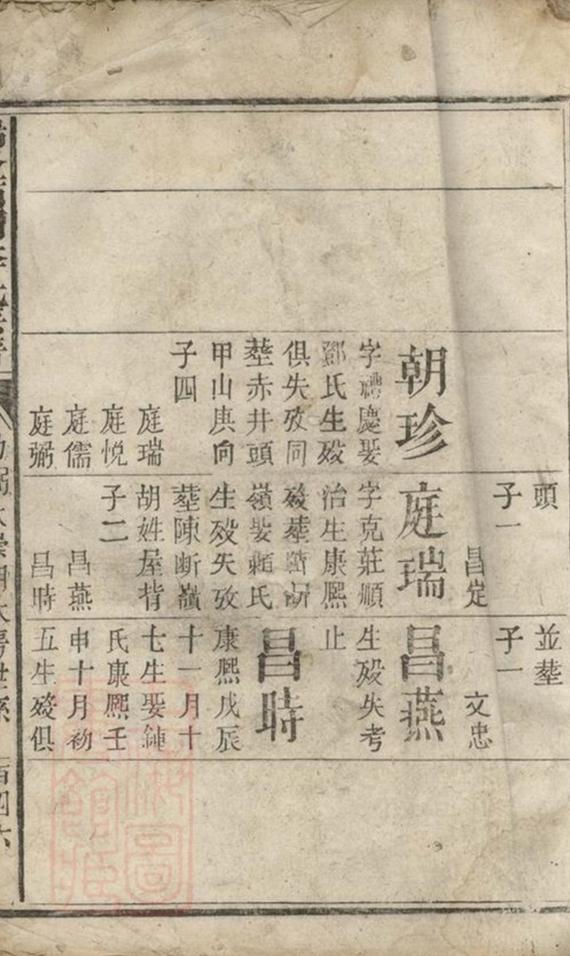 朝珍
字禮慶娶
鄧氏生殁
俱失攷同
塟赤井頭
甲山庚向
子四
庭瑞
庭悅
庭儒
庭弼
頭
子一
昌定
庭瑞
字克莊順
治生康熙
殁塟
嶺娶賴氏
生殁失攷
塟陳断嶺
胡姓屋背
子二
昌燕
昌時
並塟
子一
文忠
昌燕
生殁失考
止
昌時
康熙戊辰
十一月十
七生娶鍾
氏康熙壬
申十月初
五生殁俱
房世系
百四六